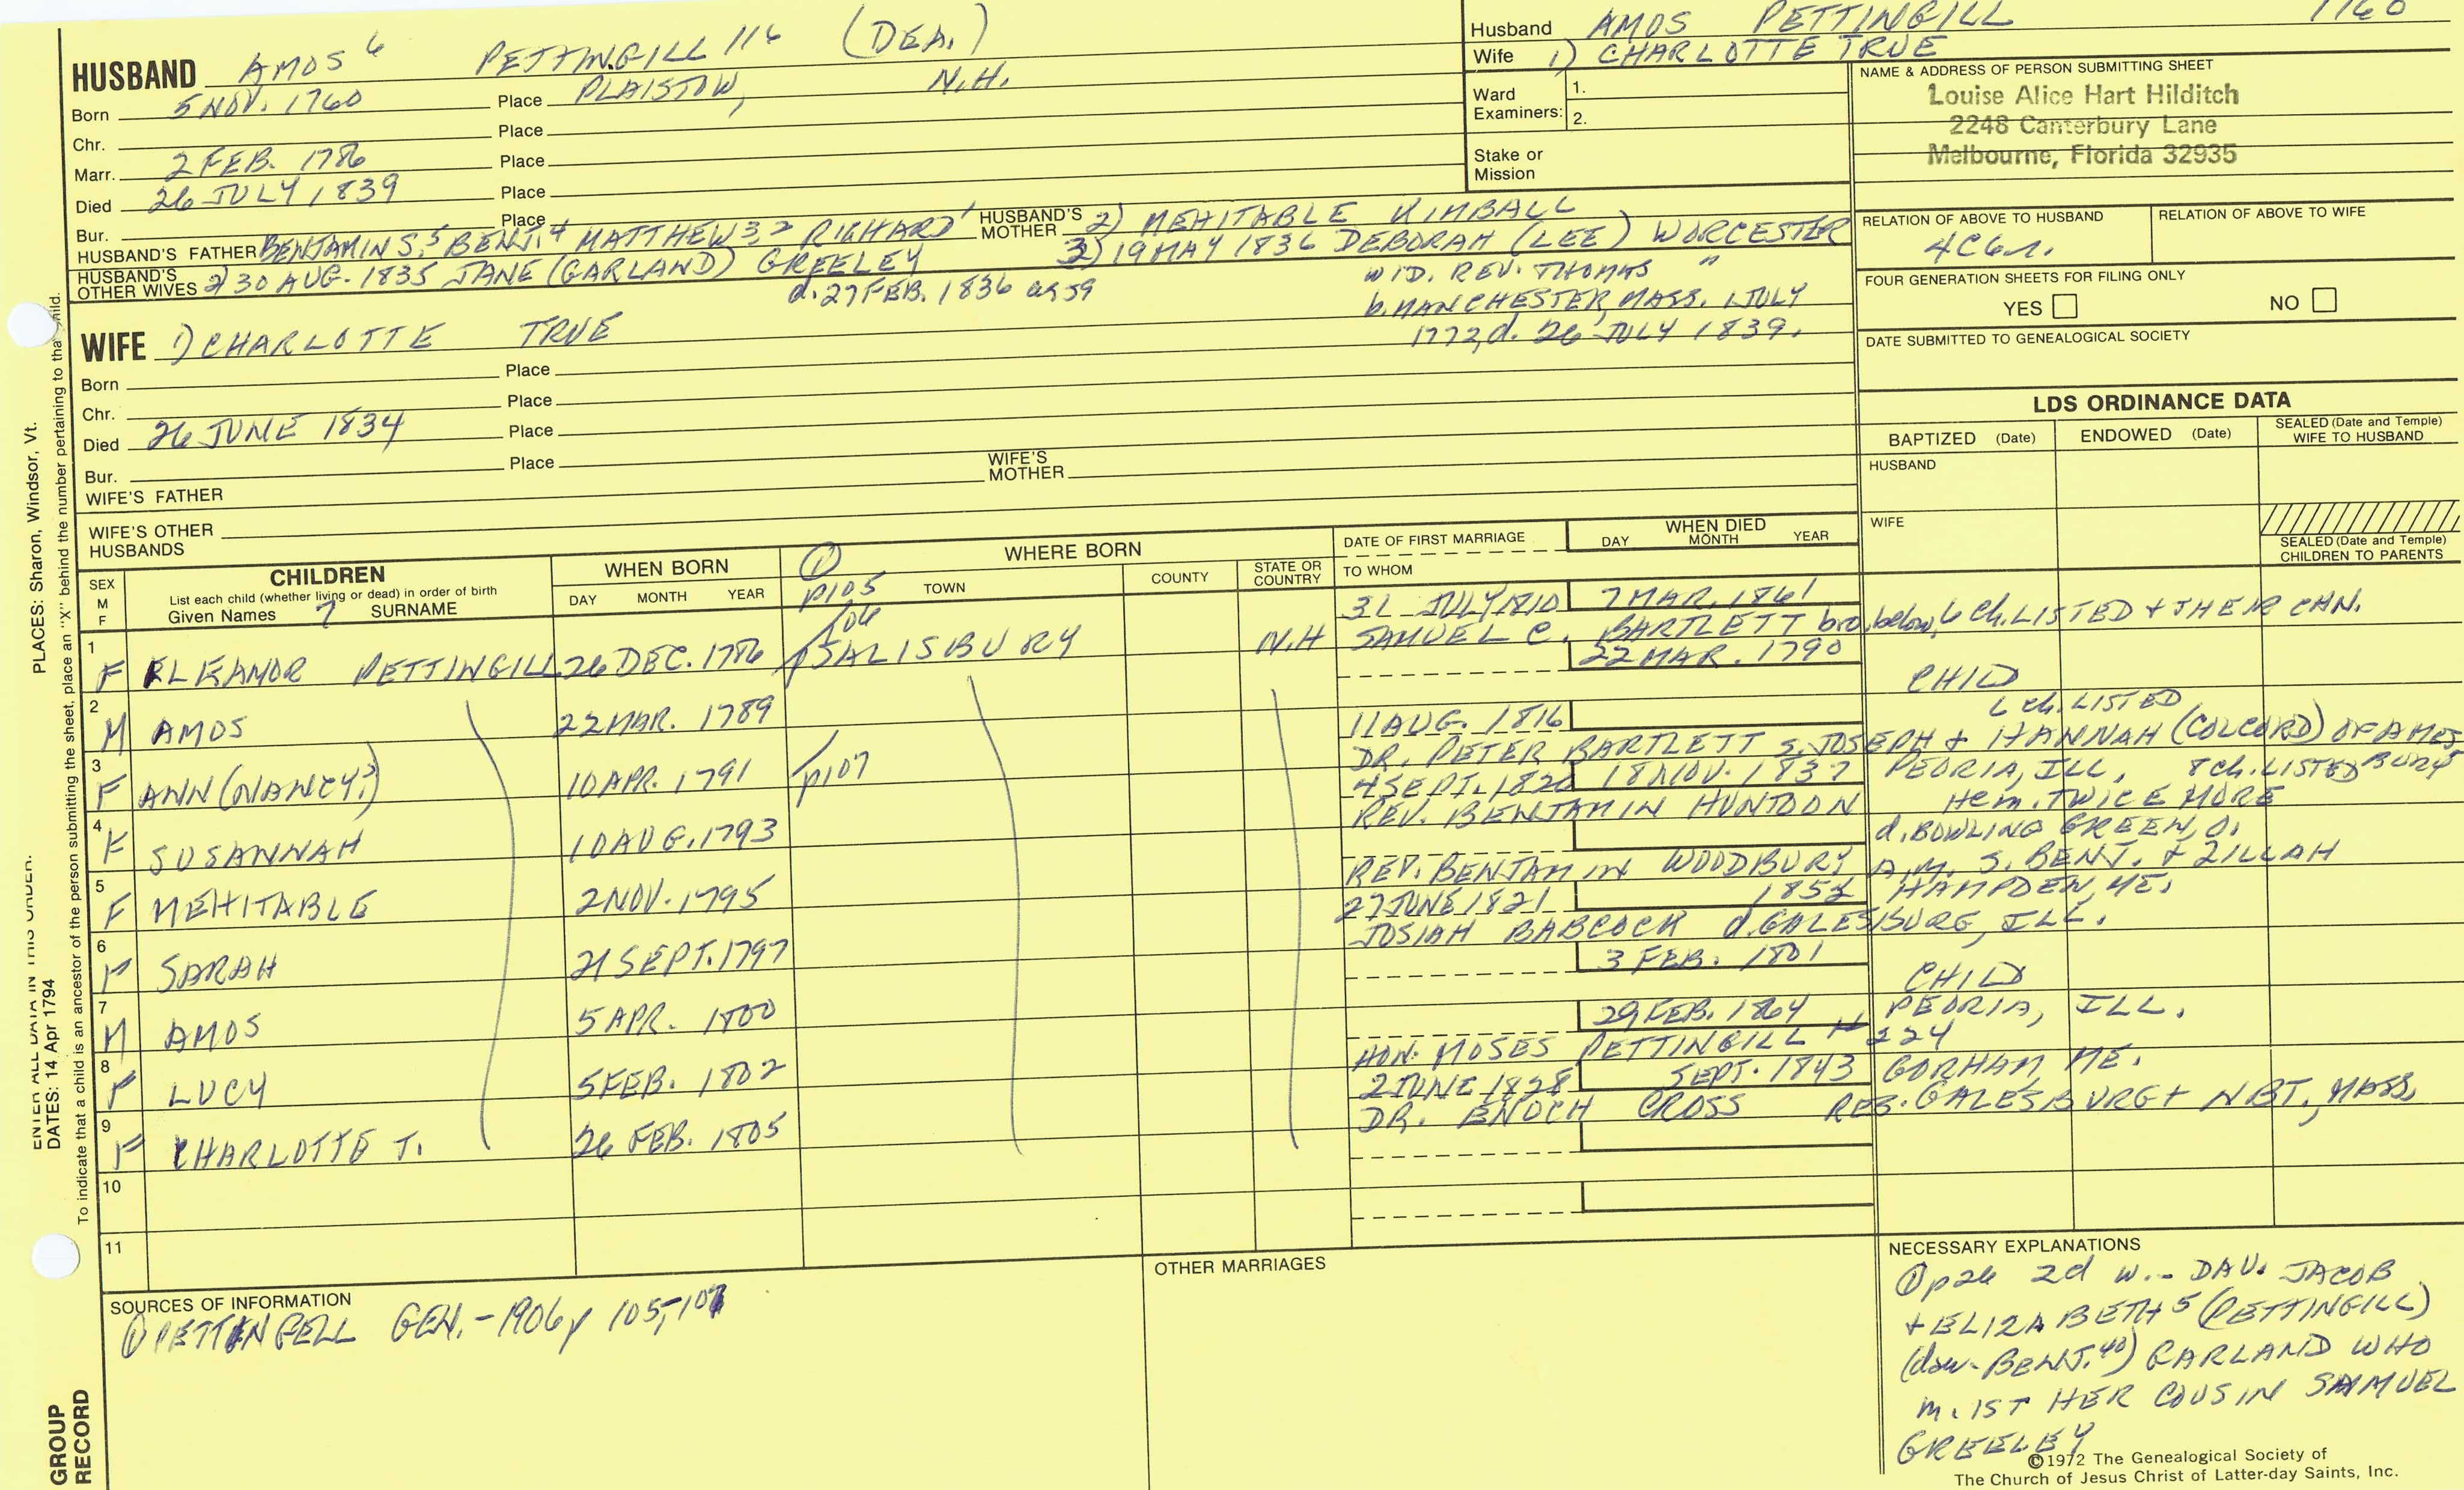 HUSBAND AMOS 6 PETTINGILL 116 (DEA.)
Born 5 NOV. 1760 Place PLAISTOW, N.H.
Chr. Place
Marr. 2 FEB. 1786 Place
Died 26 JULY 1839 Place
Bur. Place
HUSBAND'S FATHER BENJAMIN S, 5 BENJ. 4 MATTHEW 3, 2 RICHARD 1 HUSBAND'S MOTHER 2) MEHITABLE KIMBALL
HUSBAND'S OTHER WIVES 2) 30 AUG. 1835 JANE (GARLAND) GREELEY 3) 19 MAY 1836 DEBORAH (LEE) WORCESTER
d. 27 FEB. 1836 ae 59
WID. REV. THOMAS "
b. MANCHESTER, MASS. 1 JULY
1773, d. 26 JULY 1839.
Husband AMOS PETTINGILL 1760
Wife 1) CHARLOTTE TRUE
Ward Examiners: 1.
2.
Stake or Mission
NAME & ADDRESS OF PERSON SUBMITTING SHEET
Louise Alice Hart Hilditch
2248 Canterbury Lane
Melbourne, Florida 32935
RELATION OF ABOVE TO HUSBAND RELATION OF ABOVE TO WIFE
4C6r.
FOUR GENERATION SHEETS FOR FILING ONLY
YES NO
DATE SUBMITTED TO GENEALOGICAL SOCIETY
WIFE 1) CHARLOTTE TRUE
Born Place
Chr. Place
Died 26 JUNE 1834 Place
Bur. Place
WIFE'S FATHER WIFE'S MOTHER
WIFE'S OTHER HUSBANDS
LDS ORDINANCE DATA
BAPTIZED (Date) ENDOWED (Date) SEALED (Date and Temple) WIFE TO HUSBAND
HUSBAND
WIFE
SEALED (Date and Temple) CHILDREN TO PARENTS
SEX M F
CHILDREN
List each child (whether living or dead) in order of birth
Given Names 7 SURNAME
WHEN BORN
DAY MONTH YEAR
① p105
106
WHERE BORN
TOWN COUNTY STATE OR COUNTRY
DATE OF FIRST MARRIAGE
TO WHOM
WHEN DIED
DAY MONTH YEAR
1 F ELEANOR PETTINGILL 26 DEC. 1786 SALISBURY N.H
31 JULY 1810 7 MAR. 1861
SAMUEL C. BARTLETT bro. below, 6 Ch. LISTED + THEIR CHN.
2 M AMOS 22 MAR. 1789
22 MAR. 1790 CHILD
3 F ANN (NANCY?) 10 APR. 1791 p107
11 AUG. 1816 6 Ch. LISTED
DR. PETER BARTLETT S. JOSEPH + HANNAH (COLCORD) OF AMESBURY
PEORIA, ILL. 8 Ch. LISTED
4 F SUSANNAH 10 AUG. 1793
4 SEPT. 1820 18 NOV. 1837
REV. BENJAMIN HUNTOON HE m. TWICE MORE
5 F MEHITABLE 2 NOV. 1795
d. BOWLING GREEN, O.
REV. BENJAMIN WOODBURY A.M. S. BENJ. & ZILLAH
6 F SARAH 21 SEPT. 1797
27 JUNE 1821 HAMPDEN, ME.
JOSIAH BABCOCK d. GALESBURG, ILL.
7 M AMOS 5 APR. 1800
3 FEB. 1801 CHILD
8 F LUCY 5 FEB. 1802
29 FEB. 1864 PEORIA, ILL.
HON. MOSES PETTINGILL # 224
9 F CHARLOTTE T. 26 FEB. 1805
2 JUNE 1828 SEPT. 1843 GORHAM ME.
DR. ENOCH CROSS RES. GALESBURG + NBT., MASS.
10
11
SOURCES OF INFORMATION
① PETTINGELL GEN. - 1906 p 105,-107
OTHER MARRIAGES
NECESSARY EXPLANATIONS
① p26 2d w. - DAU. JACOB
+ ELIZABETH 5 (PETTINGILL)
(dau. BENJ. 40) GARLAND WHO
m. 1ST HER COUSIN SAMUEL
GREELEY
©1972 The Genealogical Society of
The Church of Jesus Christ of Latter-day Saints, Inc.
PLACES: Sharon, Windsor, Vt.
To indicate that a child is an ancestor of the person submitting the sheet, place an "X" behind the number pertaining to that child.
ENTER ALL DATA IN THIS ORDER:
DATES: 14 Apr 1794
GROUP
RECORD